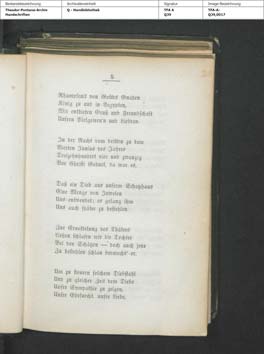 Bestandsbezeichnung Archivalieneinheit Signatur Image-Bezeichnung
Theodor-Fontane-Archiv Q - Handbibliothek TFA A TFA-A-
Handschriften Q39 Q39_0017
5
Rhampsenit von Gottes Gnaden
König zu und in Egypten,
Wir entbieten Gruß und Freundschaft
Unsern Vielgetreu'n und Liebden.
In der Nacht vom dritten zu dem
Vierten Junius des Jahres
Dreizehnhundert vier und zwanzig
Vor Christi Geburt, da war es,
Daß ein Dieb aus unserm Schatzhaus
Eine Menge von Juwelen
Uns entwendet; es gelang ihm
Uns auch später zu bestehlen.
Zur Ermittelung des Thäters
Ließen schlafen wir die Tochter
Bei den Schätzen — doch auch jene
Zu bestehlen schlau vermocht' er.
Um zu steuern solchem Diebstahl
Und zu gleicher Zeit dem Diebe
Unsre Sympathie zu zeigen,
Unsre Ehrfurcht, unsre Liebe,